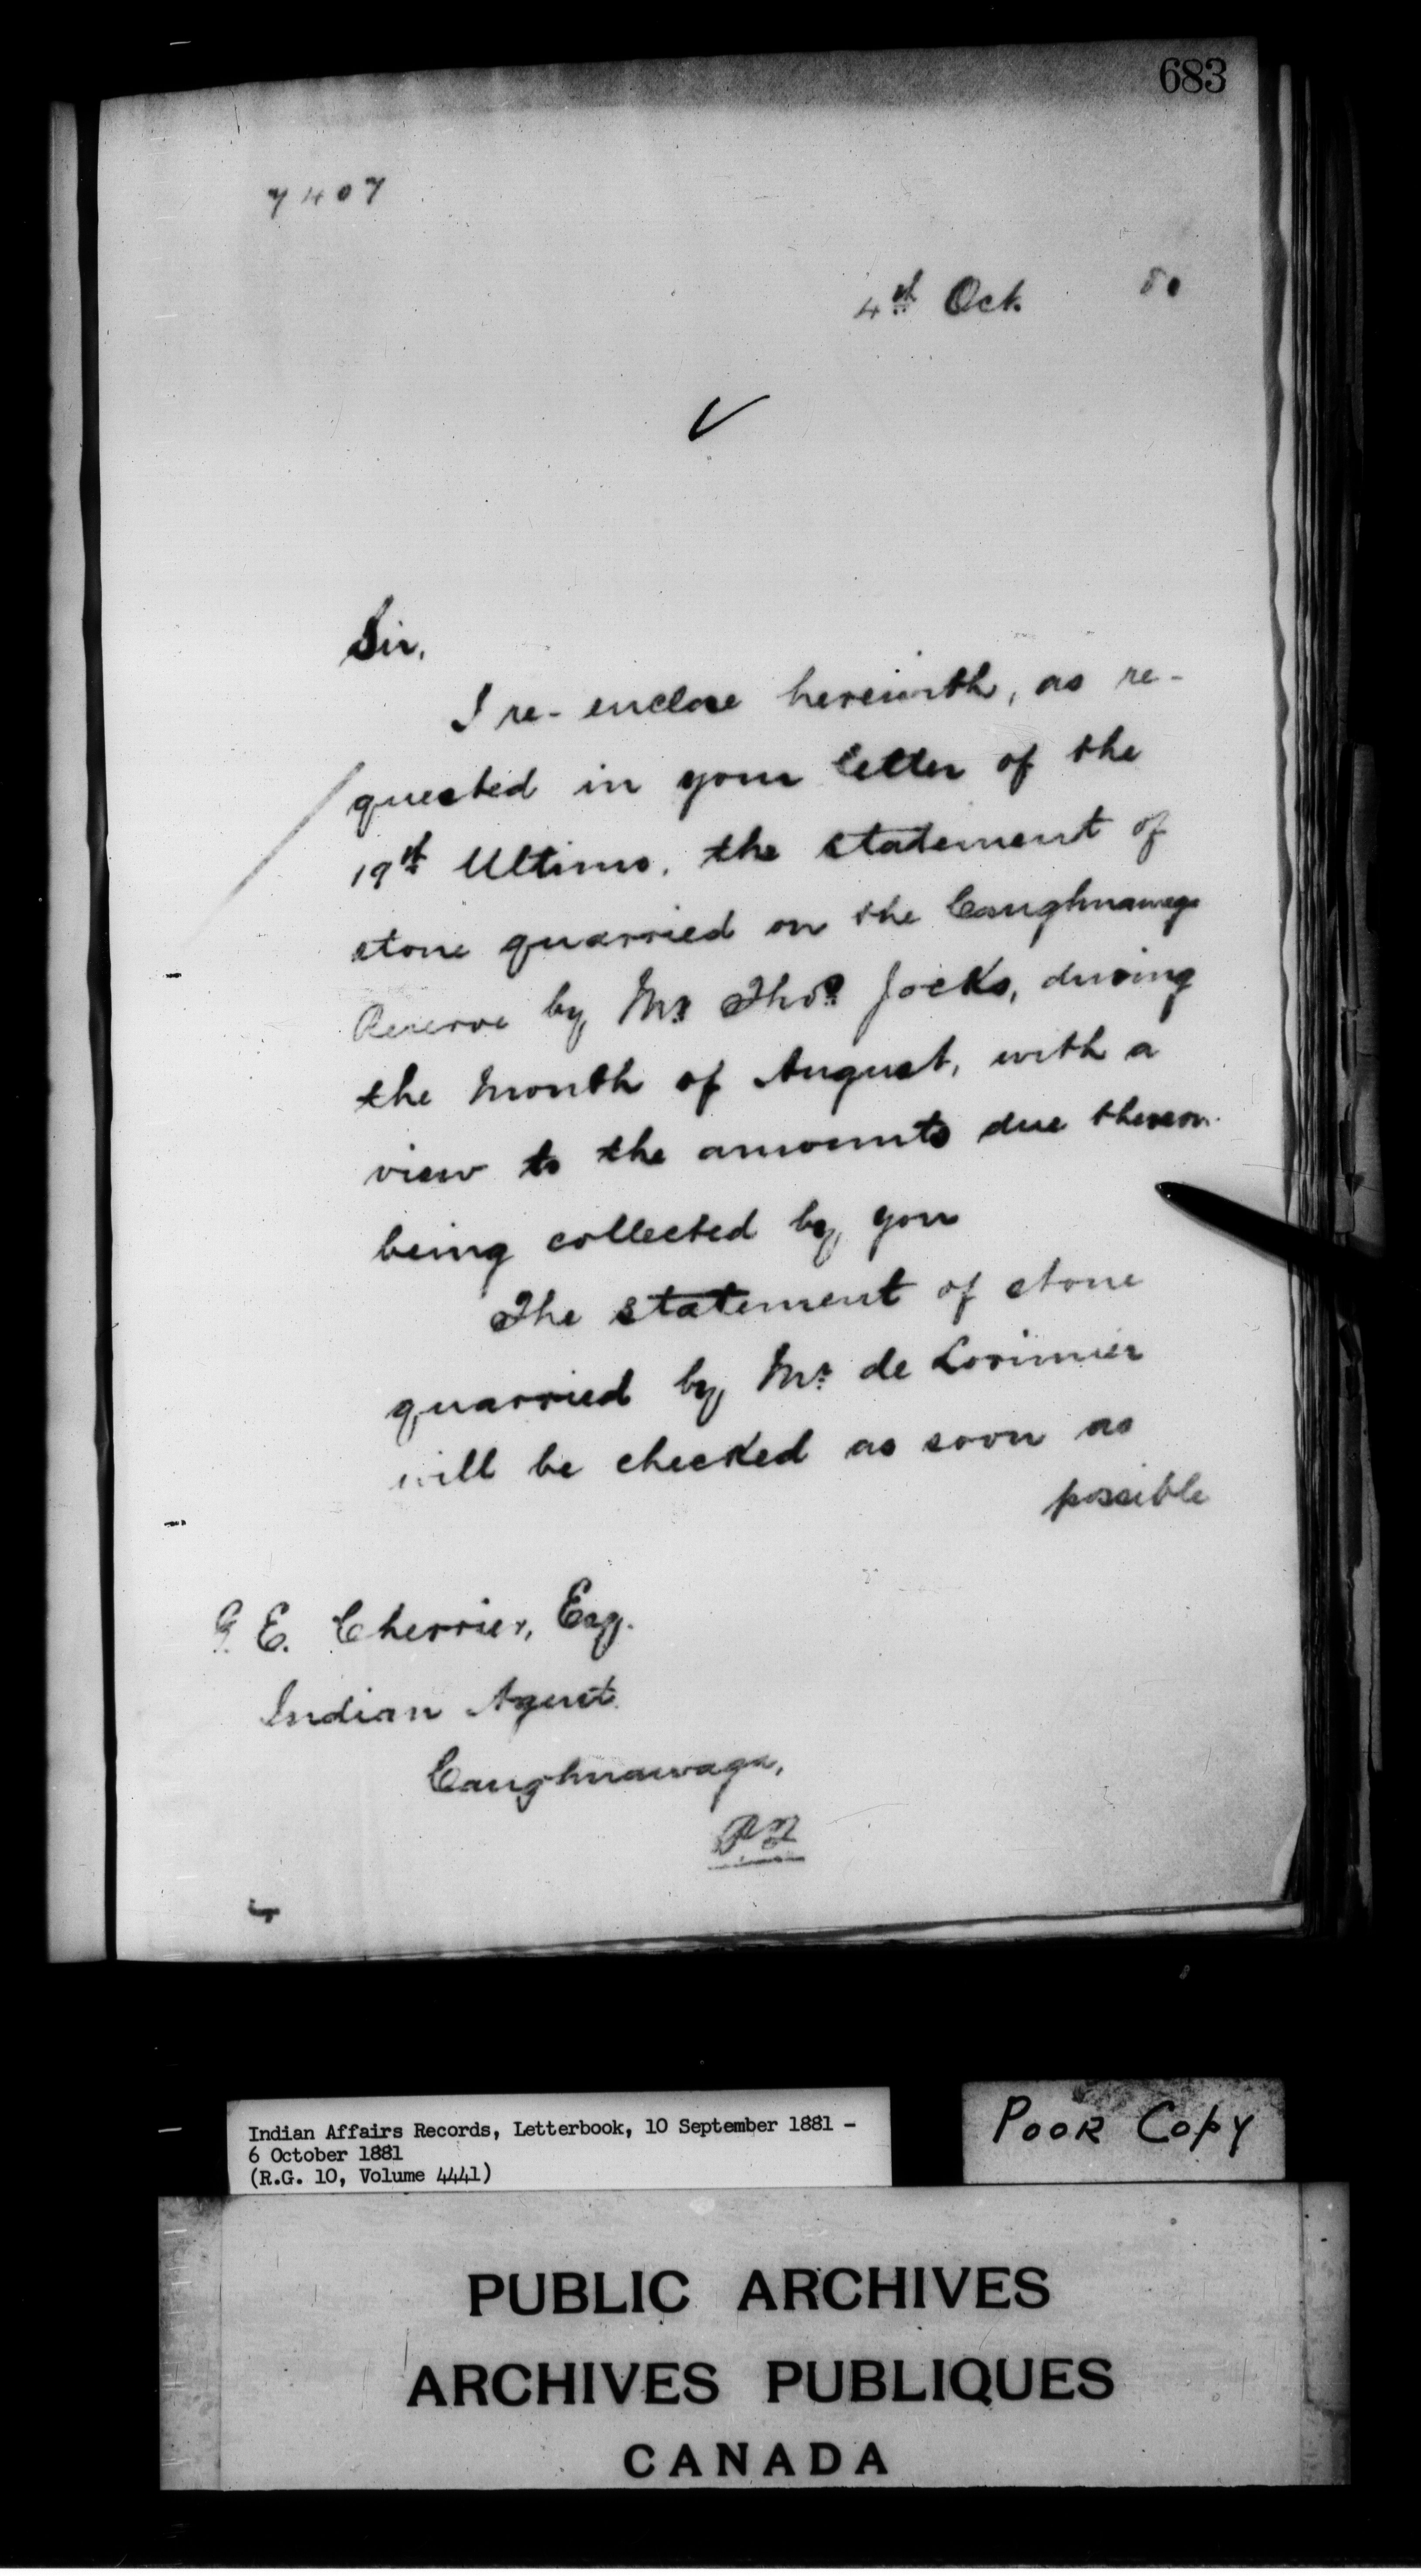 683
7407
4th Oct. 80
Sir,
I re-enclose herewith, as re-
quested in your letter of the
19th Ultimo, the statement of
stone quarried on the Caughnawaga
Reserve by Mr. Thos. Jocks, during
the Month of August, with a
view to the amounts due thereon
being collected by you
The statement of stone
quarried by Mr. de Lorimier
will be checked as soon as
possible
G. E. Cherrier, Esq.
Indian Agent
Caughnawaga,
PQ
Indian Affairs Records, Letterbook, 10 September 1881 -
6 October 1881
(R.G. 10, Volume 4441)
POOR COPY
PUBLIC ARCHIVES
ARCHIVES PUBLIQUES
CANADA